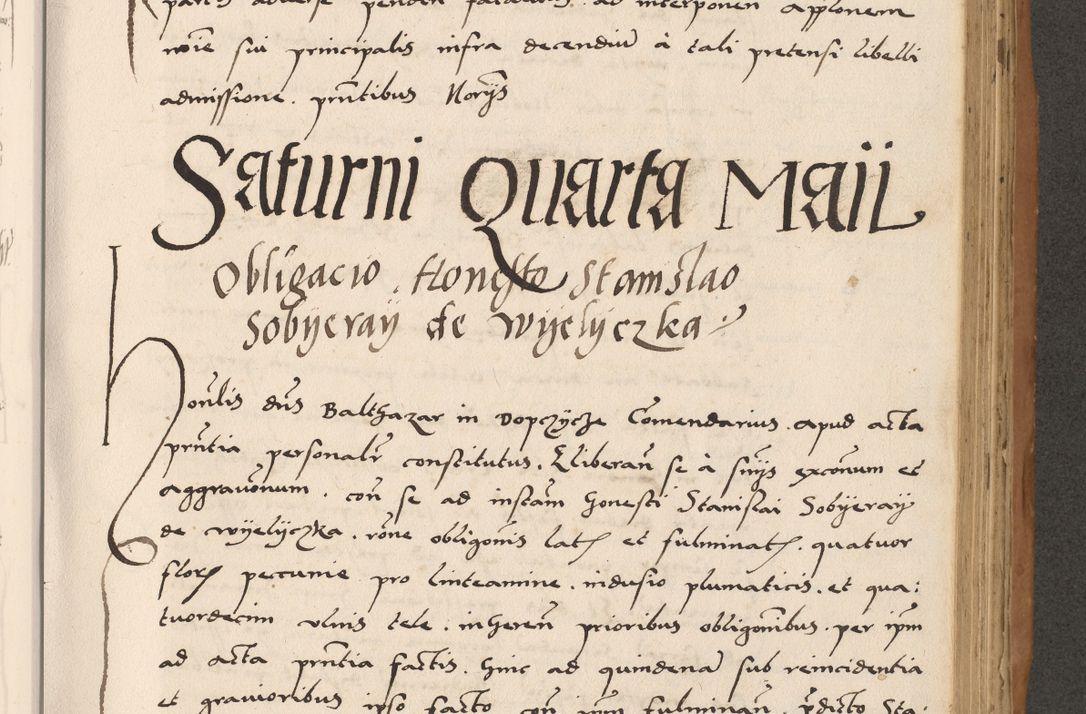 partis adverse penden ad interponen applonem
noie sui principalis infra decendiu à tali pretensi libelli
admissione. prntibus Norys
Saturni Quarta Maii
Obligacio. Honesto Stanislao
Sobyeray de Wyelyczka
honlis dns Balthazar in Dopczycze Comendarius. apud acta
prntia personalr constitutus. Lliberan se à snys exconum et
aggravonum. con se ad instam honesti Stanislai Sobyeray
de wyelyczka. rone obligonis lat et fulminat. quatuor
flor peccunie pro linteamine. indusio plumaticis. et qua:
tuordecim ulnis tele. inheren prioribus obligonibus. per ipm
ad acta prntia factis. hinc ad quindena sub reincidentia
et gravioribus ipso facto con ipum fulminan. pdicto Sta: